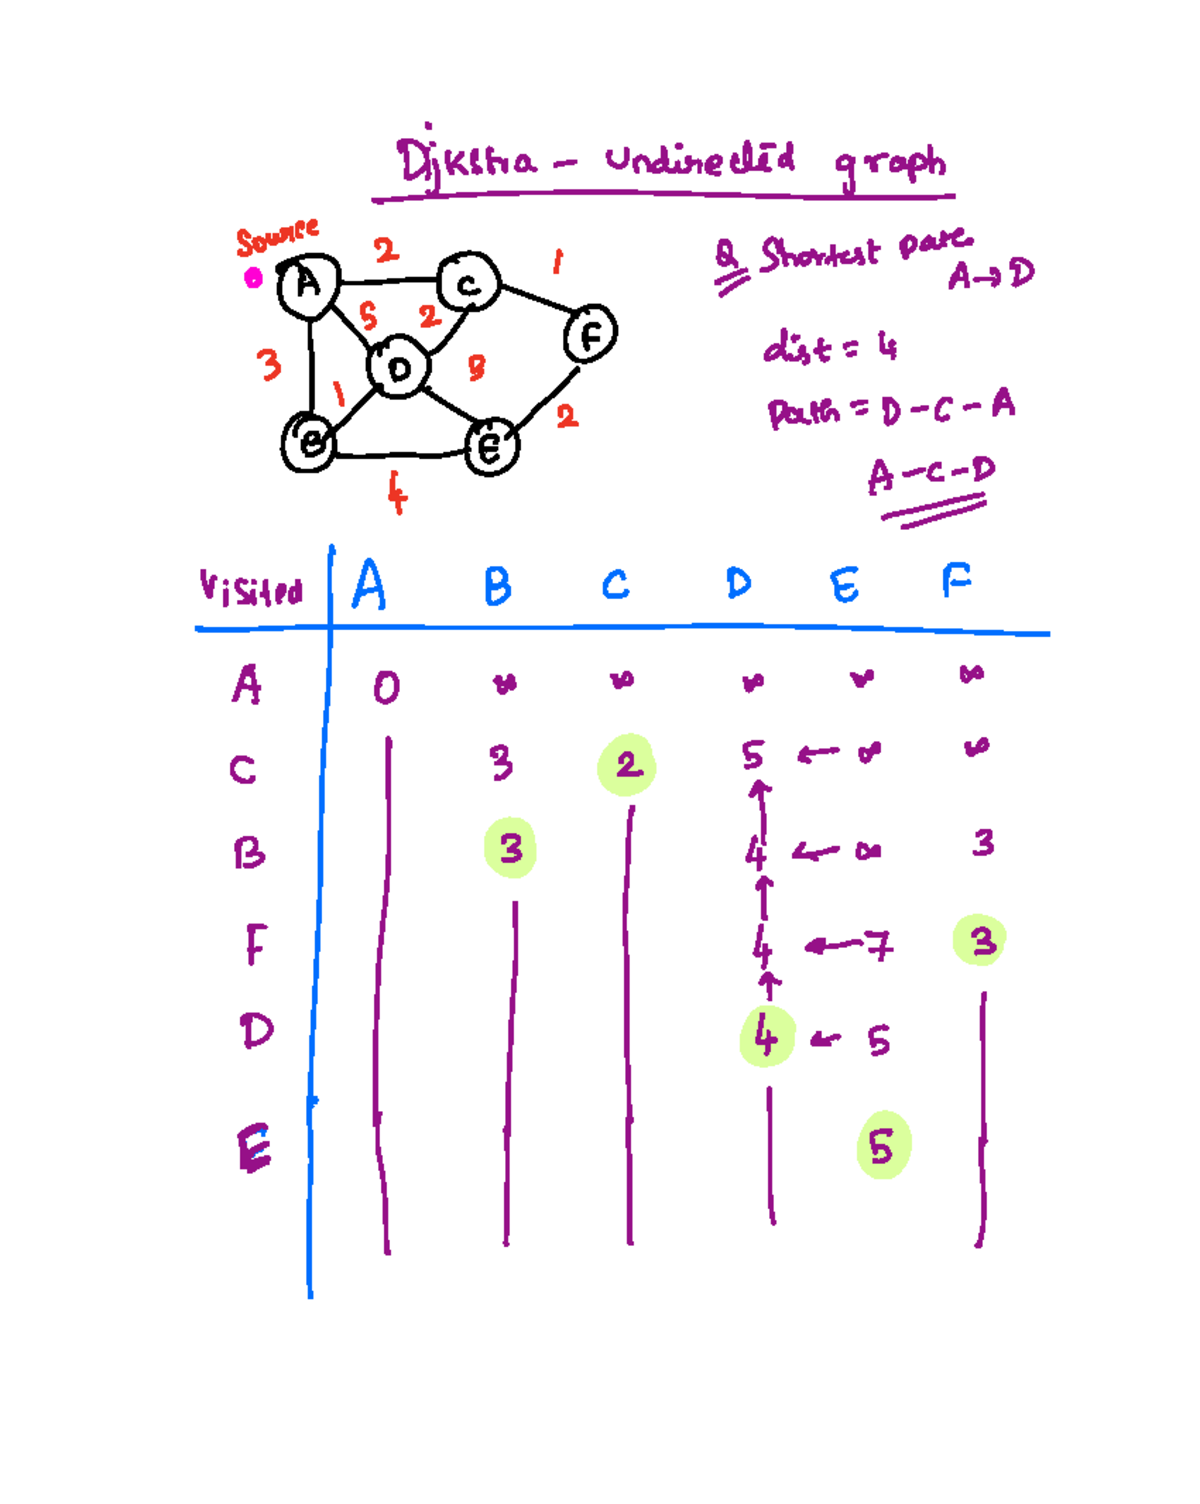 Dijkstra - Undirected graph
Source
2
1
Q Shortest
A
C
A → D
5
2
F
dist = 4
3
D
3
1
2
Path = D - C - A
B
E
4
A - C - D
Visited A B C D E F
A 0 ∞ ∞ ∞ ∞ ∞
C 3 2 5 ← ∞ ∞
B 3 4 ← ∞ 3
F 4 ← 7 3
D 4 ← 5
E 5